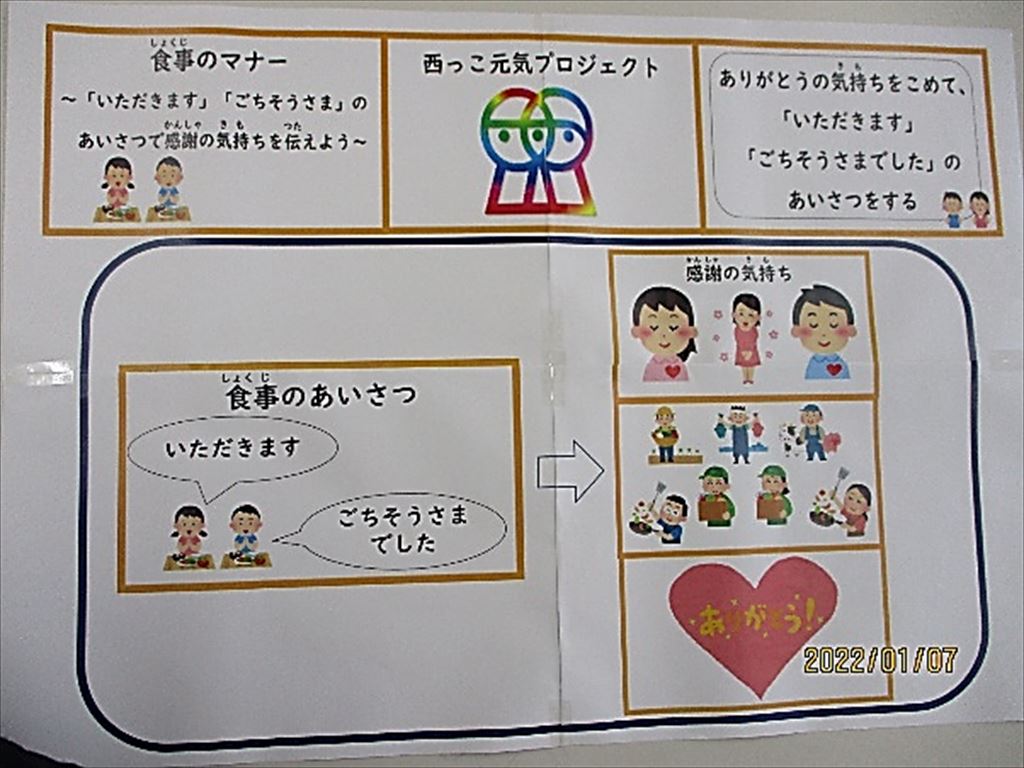 しょくじ
食事のマナー
～「いただきます」「ごちそうさま」の
かんしゃ きも つた
あいさつで感謝の気持ちを伝えよう～
西っこ元気プロジェクト
きも
ありがとうの気持ちをこめて、
「いただきます」
「ごちそうさまでした」の
あいさつをする
しょくじ
食事のあいさつ
いただきます
ごちそうさま
でした
かんしゃ きも
感謝の気持ち
ありがとう!
2022/01/07